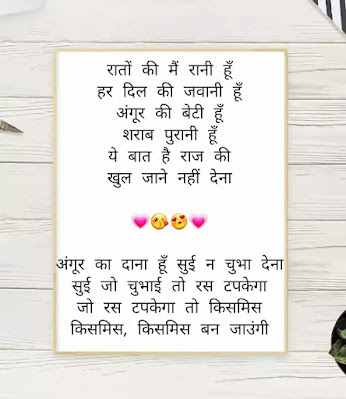 रातों की मैं रानी हूँ
हर दिल की जवानी हूँ
अंगूर की बेटी हूँ
शराब पुरानी हूँ
ये बात है राज की
खुल जाने नहीं देना
💗😘😍💗
अंगूर का दाना हूँ सुई न चुभा देना
सुई जो चुभाई तो रस टपकेगा
जो रस टपकेगा तो किसमिस
किसमिस, किसमिस बन जाउंगी